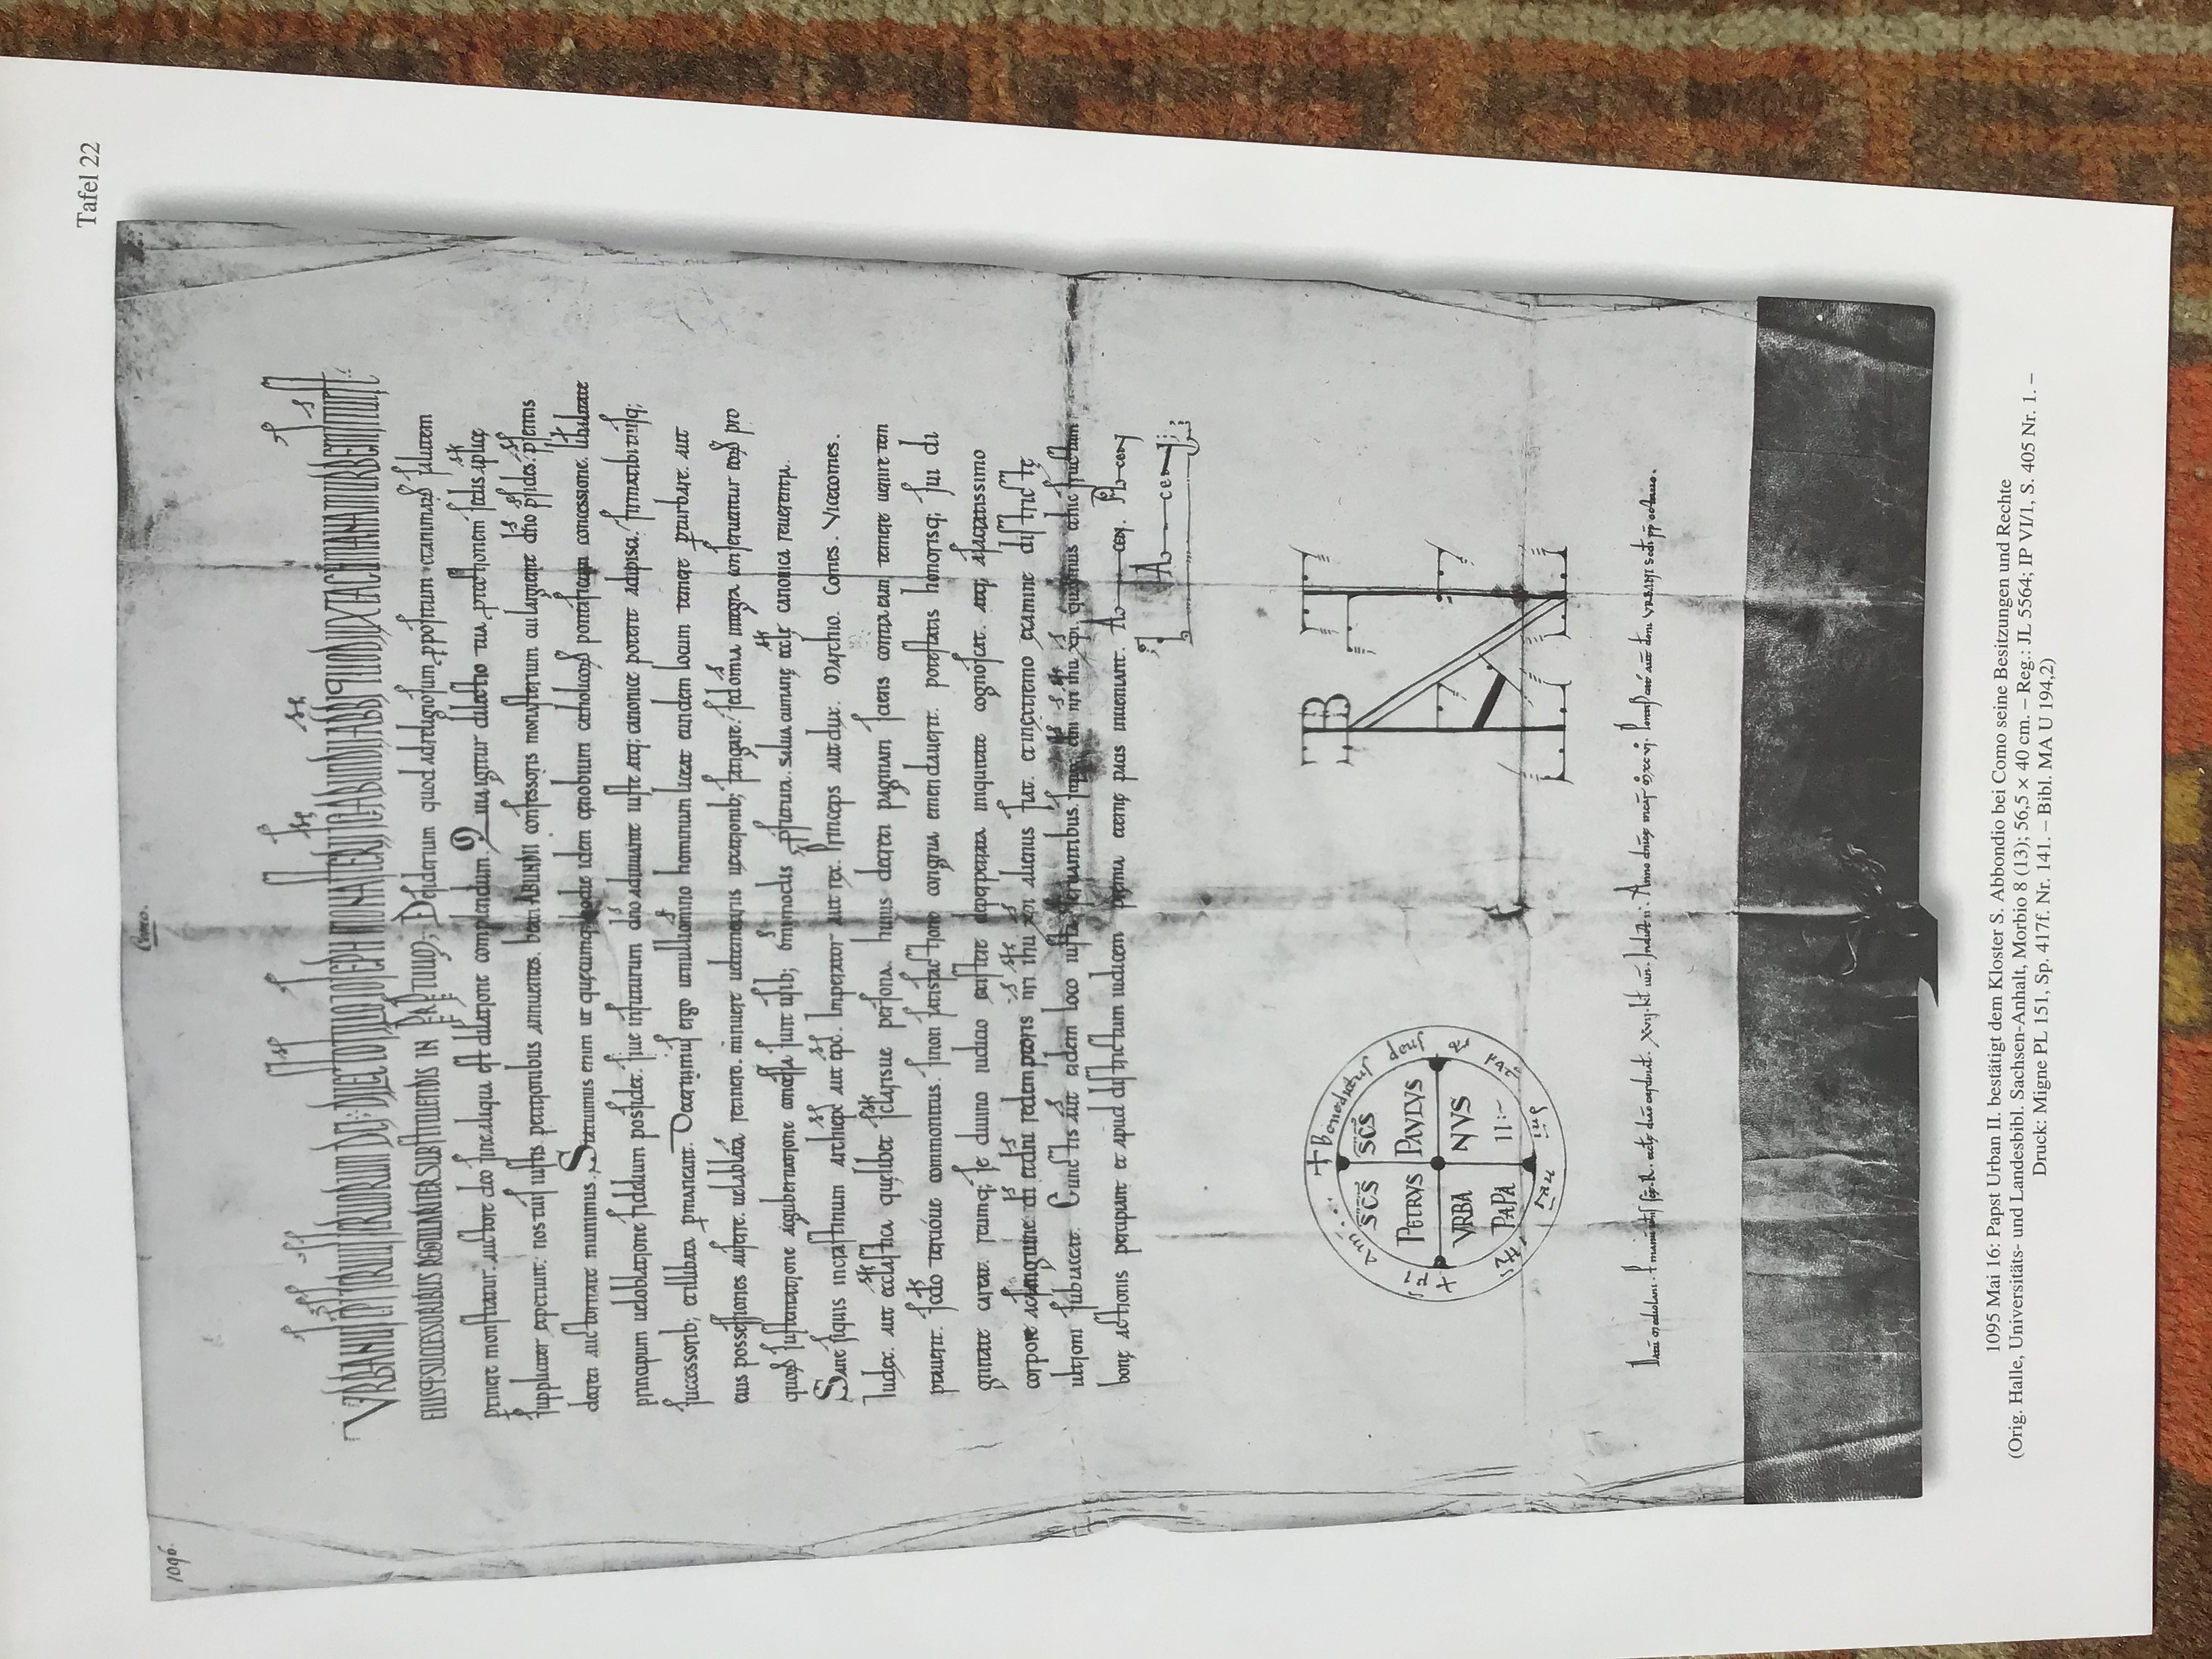 Tafel 22
1096
Como.
URBANUS EP̅S SERVUS SERVORUM DEI. DILECTO FILIO JOSEPH MONASTERII SC̅I ABUNDII ABB̅I QUOD JUXTA CUMANAM URBEM SITUM EST
EIUSQ; SUCCESSORIBUS REGULARITER SUBSTITUENDIS IN P̅P̅TUUM; Desiderium quod ad religiosum p̱positum et animaꝝ salutem
ꝑtinere monstratur. auctore deo sine aliqua est dilatione complendum. Quia igitur dilectio tua ꝓtectionem sedis ap̅licę
suppliciter expetiuit. nos tuis iustis petitionibus annuentes. beati ABUNDII confessoris monasterium cui largiente dn̅o p̅sides. p̅sentis
decreti auctoritate munimus. Statuimus enim ut quęcumq; hodie idem cęnobium catholicoꝝ pontificum concessione. lib̅alitate
principum uel oblatione fidelium possidet. siue in futurum dn̅o adiuuante iuste atq; canonice poterit adipisci. firma tibi tuisq;
successorib; et illibata ꝑmaneant. Decernimus ergo ut nulli om̅ino hominum liceat eundem locum temere ꝑturbare. aut
eius possessiones auferre. uel ablata retinere. minuere uel temerarius uexationib; fatigare. sed om̅ia integra conseruentur eoꝝ pro
quoꝝ sustentatione ac gubernatione concessa sunt usib; om̅imodis ꝓfutura. salua cumanę eccl̅ę canonica reuerentia.
Sane siquis in crastinum archiep̅c aut ep̅c. Imperator aut rex. Princeps aut dux. Marchio. Comes. Vicecomes.
Iudex. aut eccl̅astica quęlibet sc̅larisue persona. huius decreti paginam sciens contra eam temere uenire tem
ptauerit. sc̅do tercióue commonitus. si non satisfactione congrua emendauerit. potestatis honorisq; sui di
gnitate careat. reumq; se diuino iudicio existere de perpetrata iniquitate cognoscat. atq; a sacratissimo
corpore ac sanguine di̅ et dn̅i redemptoris nr̅i ih̅u xp̅i alienus fiat. et in extremo examine districtę
ultioni subiaceat. Cunctis aut̅ eidem loco iusta seruantibus. sit pax dn̅i nr̅i ih̅u xp̅i. quatinus et hic fructum
bonę actionis percipiant et apud districtum iudicem premia eternę pacis inueniant. Amen. Amen
Amen
+ Benedictus deus et pat̅ dn̅i nr̅i ih̅u xp̅i am̅
SC̅S SC̅S
PETRVS PAVLVS
VRBA NVS
PAPA II
BN
Datu̅ mediolani. ꝑ manu̅ ioh̅is sc̅ę. R. eccl̅ę diac̅ cardinal̅. XVII. kl̅ iun̅. Indict̅ II. Anno dn̅icę incar̅ M̅ XC VI. Pontificat̅ aut̅ dom̅ URBANI sc̅di pp̅ octauo.
1095 Mai 16: Papst Urban II. bestätigt dem Kloster S. Abbondio bei Como seine Besitzungen und Rechte
(Orig. Halle, Universitäts- und Landesbibl. Sachsen-Anhalt, Morbio 8 (13); 56,5 × 40 cm. – Reg.: JL 5564; IP VI/1, S. 405 Nr. 1. –
Druck: Migne PL 151, Sp. 417f. Nr. 141. – Bibl. MA U 194,2)